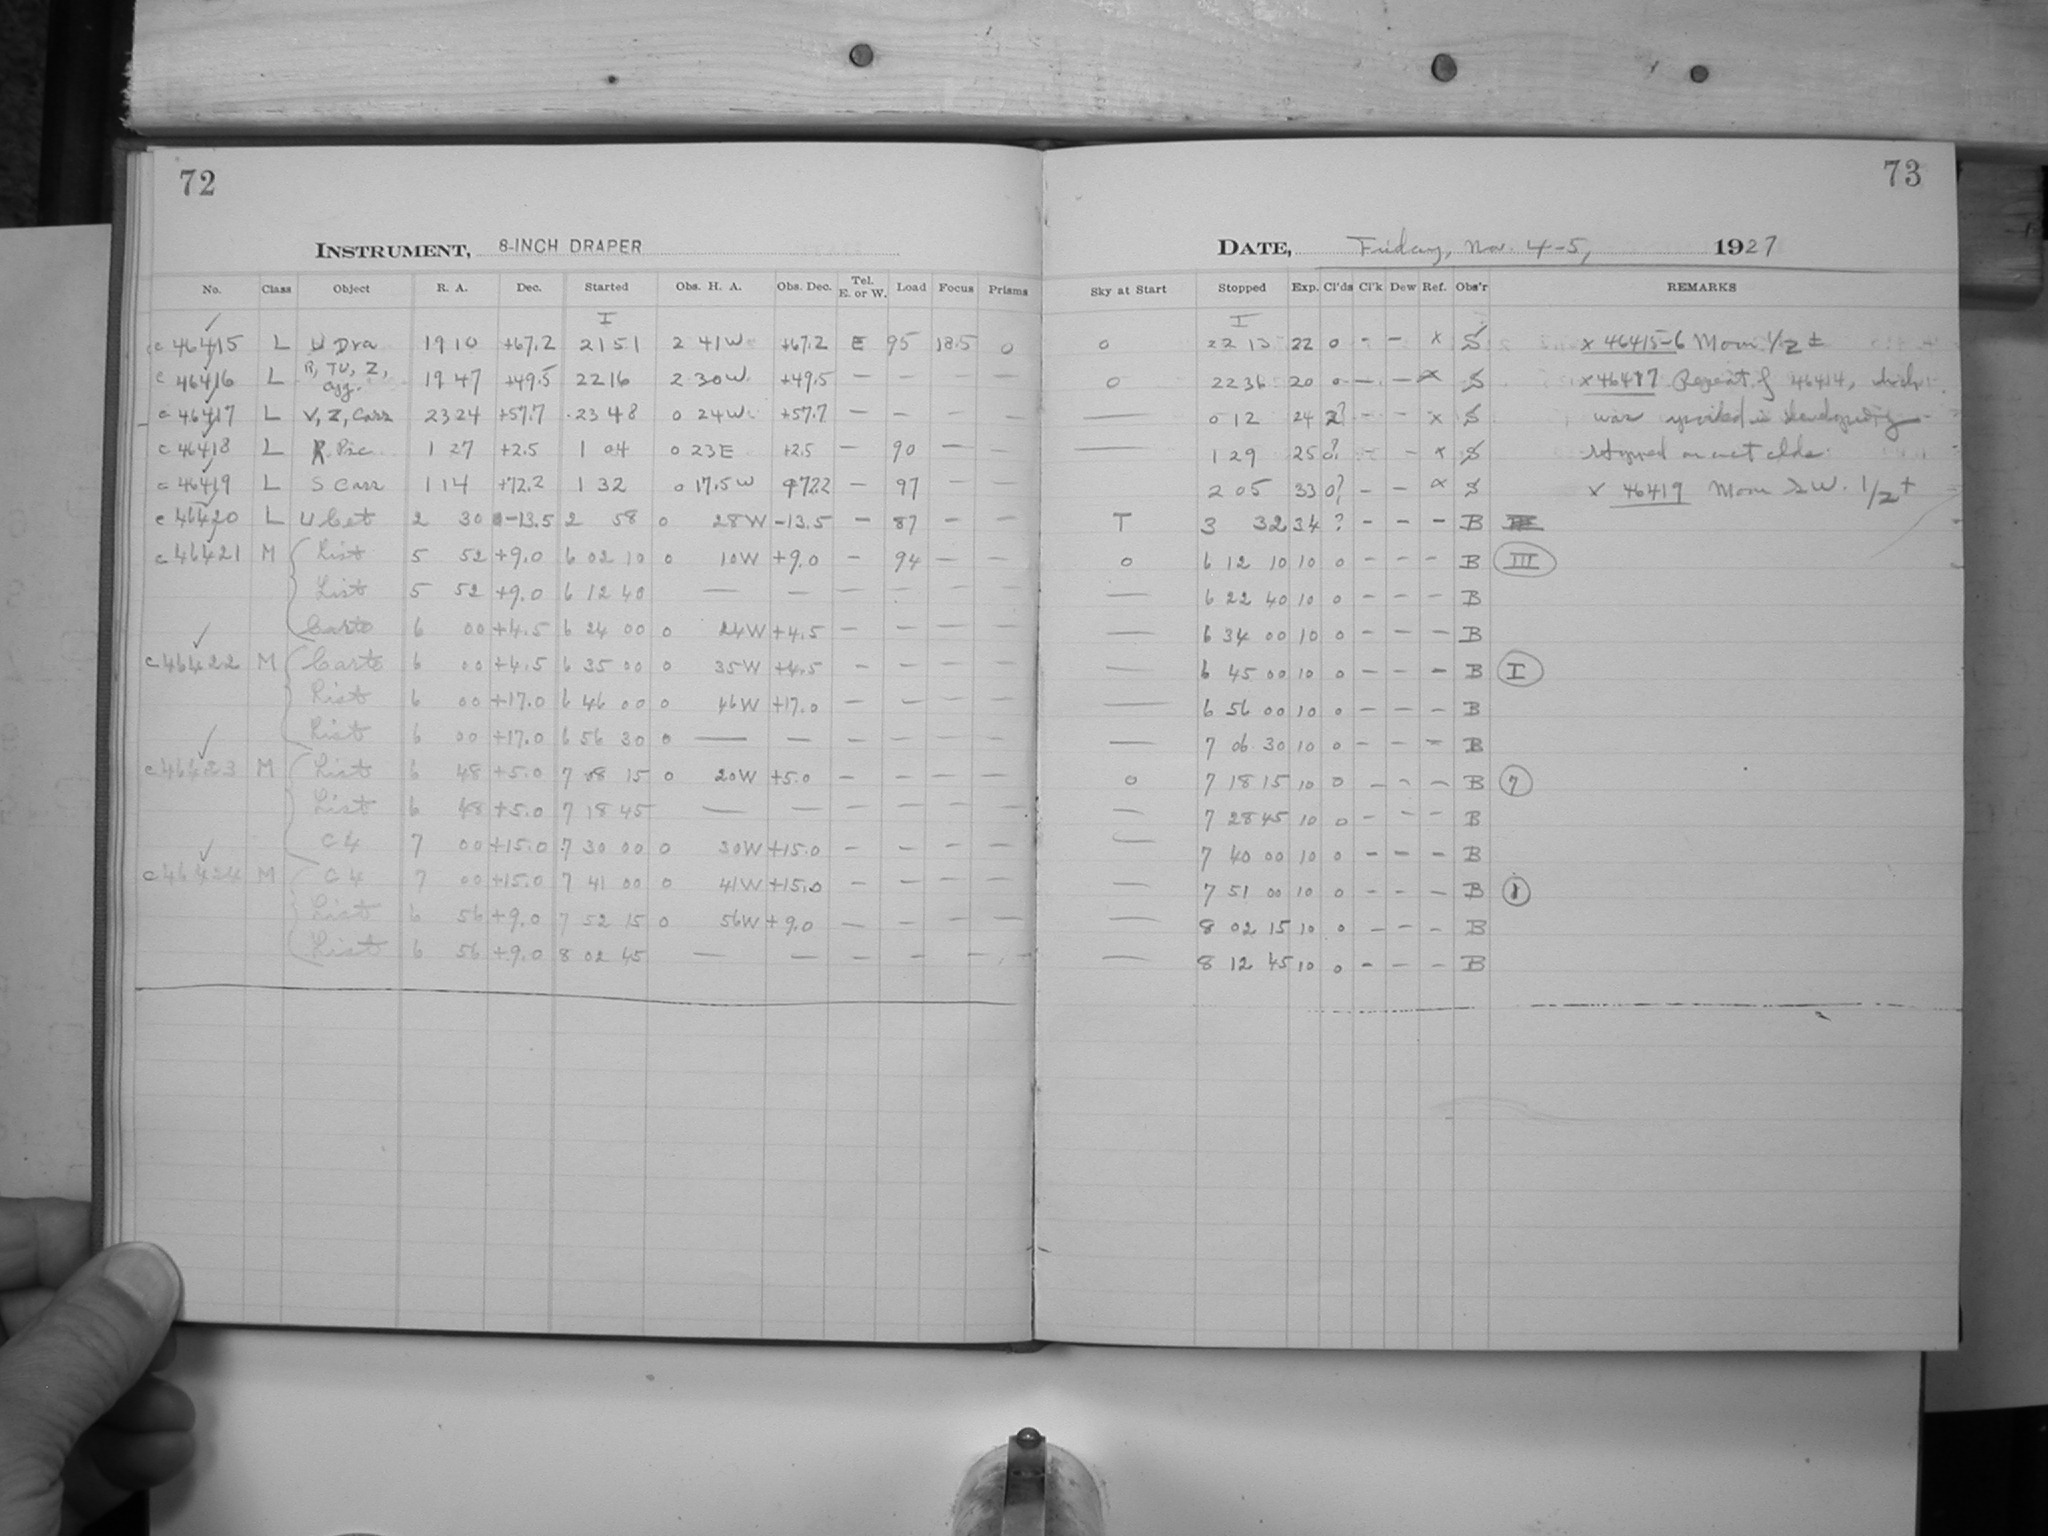 72
INSTRUMENT, 8-INCH DRAPER
No. Class Object R. A. Dec. Started Obs. H. A. Obs. Dec. Tel. E. or W. Load Focus Prisms
I
c 46415 L U Dra 19 10 +67.2 21 51 2 41W +67.2 E 95 18.5 0
c 46416 L R, TU, Z, Cyg. 19 47 +49.5 22 16 2 30W +49.5 — — — —
c 46417 L V, Z, Cass 23 24 +57.7 23 48 0 24W +57.7 — — — —
c 46418 L R Psc 1 27 +2.5 1 04 0 23E +2.5 — 90 — —
c 46419 L S Cass 1 14 +72.2 1 32 0 17.5W +72.2 — 97 — —
c 46420 L U Cet 2 30 -13.5 2 58 0 28W -13.5 — 87 — —
c 46421 M List 5 52 +9.0 6 02 10 0 10W +9.0 — 94 — —
List 5 52 +9.0 6 12 40 — — — — — —
Carte 6 00 +4.5 6 24 00 0 24W +4.5 — — — —
c 46422 M Carte 6 00 +4.5 6 35 00 0 35W +4.5 — — — —
List 6 00 +17.0 6 46 00 0 46W +17.0 — — — —
List 6 00 +17.0 6 56 30 0 — — — — — —
c 46423 M List 6 48 +5.0 7 08 15 0 20W +5.0 — — — —
List 6 48 +5.0 7 18 45 — — — — — —
C4 7 00 +15.0 7 30 00 0 30W +15.0 — — — —
c 46424 M C4 7 00 +15.0 7 41 00 0 41W +15.0 — — — —
List 6 56 +9.0 7 52 15 0 56W +9.0 — — — —
List 6 56 +9.0 8 02 45 — — — — — —
73
DATE, Friday, Nov. 4-5, 1927
Sky at Start Stopped Exp. Cl'ds Cl'k Dew Ref. Obs'r REMARKS
I
0 22 13 22 0 - - x S x 46415-6 Moon 1/2 ±
0 22 36 20 0 - - x S x 46417 Repeat of 46414, which
— 0 12 24 2? - - x S was spoiled in developing
— 1 29 25 0? - - x S Stopped on acct clds.
— 2 05 33 0? - - x S x 46419 Moon SW. 1/2 +
T 3 32 34 ? - - - B
0 6 12 10 10 0 - - - B III
— 6 22 40 10 0 - - - B
— 6 34 00 10 0 - - - B
— 6 45 00 10 0 - - - B I
— 6 56 00 10 0 - - - B
— 7 06 30 10 0 - - - B
0 7 18 15 10 0 - - - B 7
— 7 28 45 10 0 - - - B
— 7 40 00 10 0 - - - B
— 7 51 00 10 0 - - - B
— 8 02 15 10 0 - - - B
— 8 12 45 10 0 - - - B